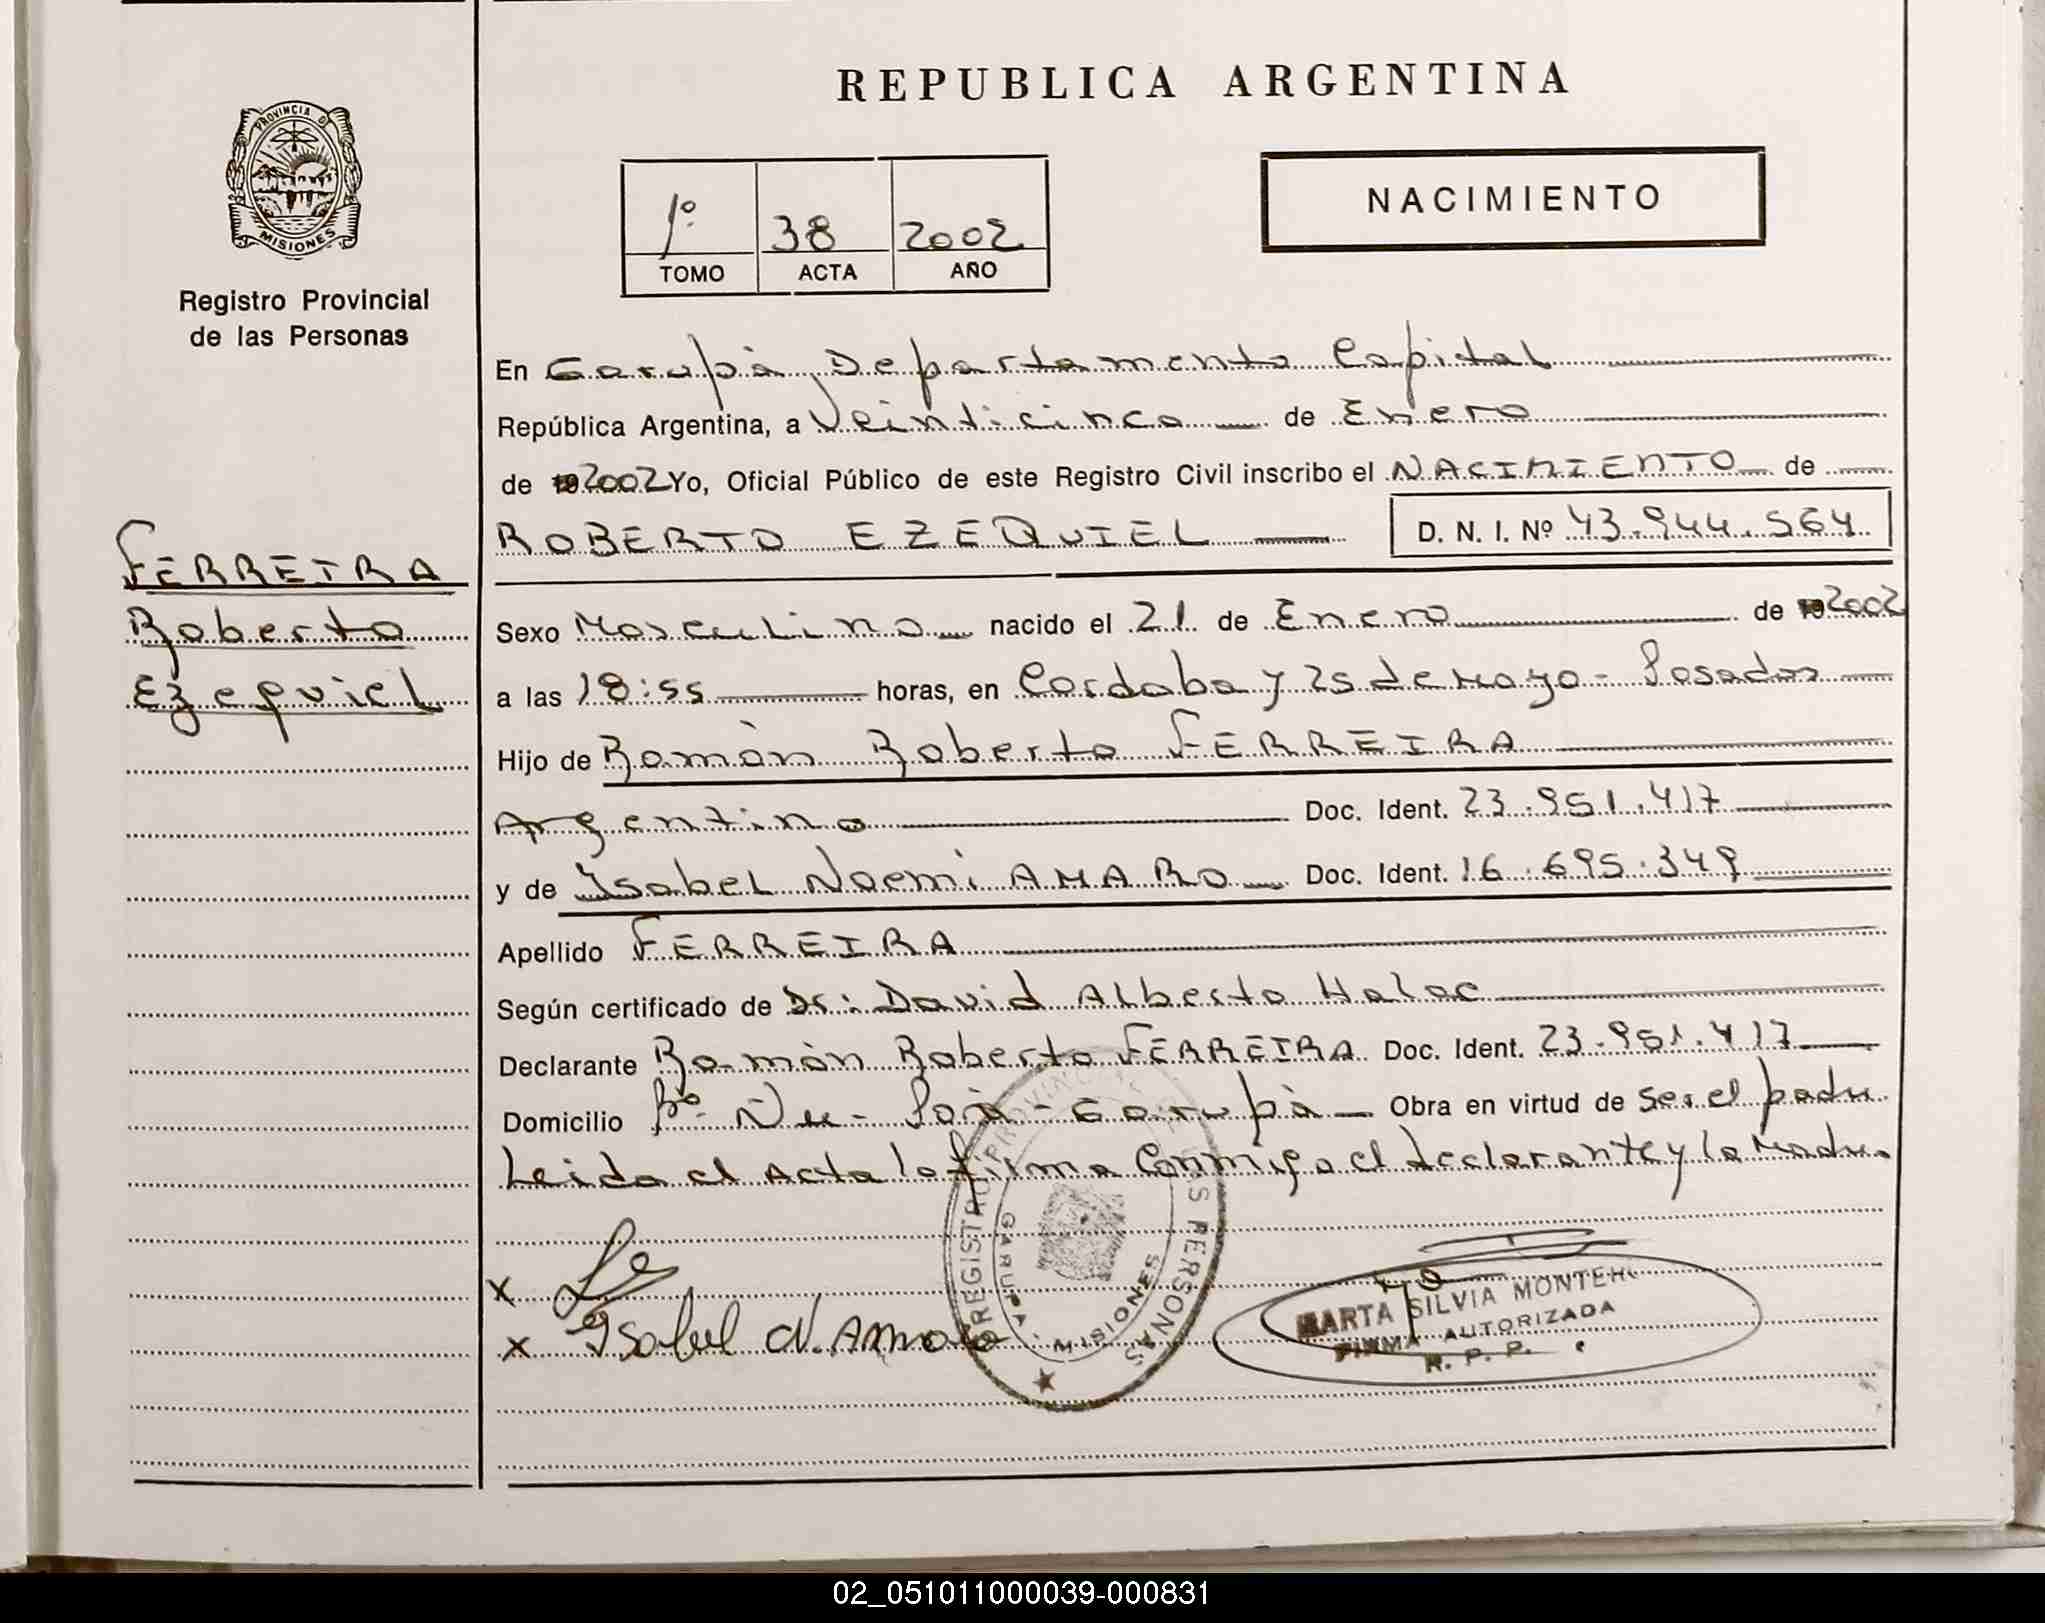 REPUBLICA ARGENTINA
PROVINCIA DE
MISIONES
Registro Provincial
de las Personas
1º 38 2002
TOMO ACTA AÑO
NACIMIENTO
En Garupà, Departamento Capital
República Argentina, a Veinticinco de Enero
de 19 2002 Yo, Oficial Público de este Registro Civil inscribo el NACIMIENTO de
ROBERTO EZEQUIEL D. N. I. Nº 43.944.564
FERREIRA
Roberto
Ezequiel
Sexo Masculino nacido el 21 de Enero de 19 2002
a las 18:55 horas, en Cordoba y 25 de Mayo - Posadas
Hijo de Ramòn Roberto FERREIRA
Argentino Doc. Ident. 23.951.417
y de Ysabel Noemi AMARO Doc. Ident. 16.695.349
Apellido FERREIRA
Según certificado de Dr: David Alberto Halac
Declarante Ramòn Roberto FERREIRA Doc. Ident. 23.951.417
Domicilio Bº Ñu - Porà - Garupà Obra en virtud de ser el padre
Leida el Acta la firma Conmigo el declarante y la Madre
x
x Ysabel N. Amaro
REGISTRO PROVINCIAL DE LAS PERSONAS
GARUPA - MISIONES
MARTA SILVIA
FIRMA AUTORIZADA
R. P. P.
02_051011000039-000831